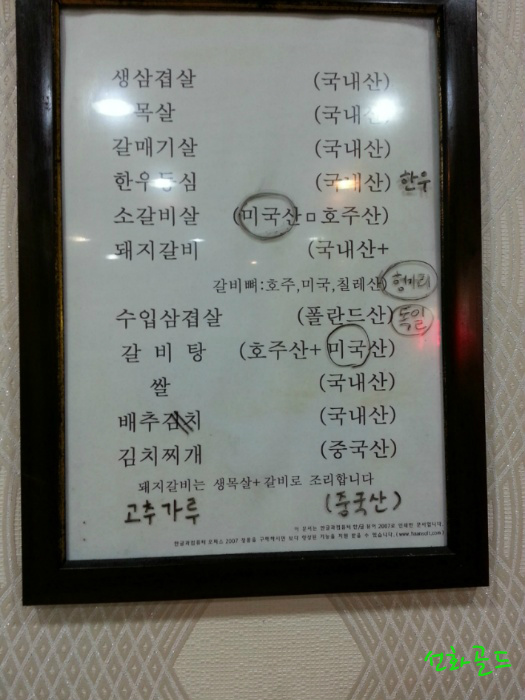 생삼겹살 (국내산)
목살 (국내산)
갈매기살 (국내산)
한우등심 (국내산) 한우
소갈비살 (미국산ㅁ호주산)
돼지갈비 (국내산+
갈비뼈:호주,미국,칠레산) 헝가리
수입삼겹살 (폴란드산) 독일
갈 비 탕 (호주산+ 미국산)
쌀 (국내산)
배추김치 (국내산)
김치찌개 (중국산)
돼지갈비는 생목살+갈비로 조리합니다
고추가루 (중국산)
선화골드